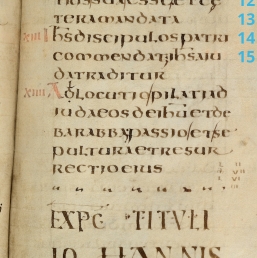 TERAMANDATA
XIII IHS DISCIPULOS PATRI
COMMENDAT IHS AIU
DATRADITUR
XIIII ADLOCUTIO PILATI AD
IUDAEOS DE IHU ET DE
BARABBA PASSIO ET SE
PULTURA ET RESUR
RECTIO EIUS
EXPC TITULI
IOHANNIS
12
13
14
15